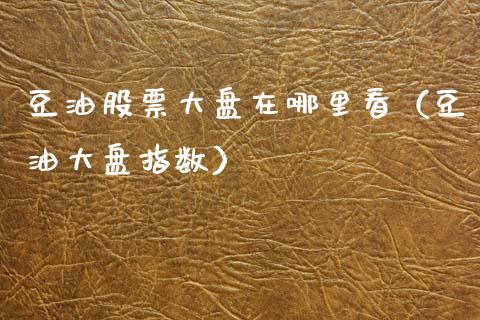 豆油股票大盘在哪里看（豆
油大盘指数）